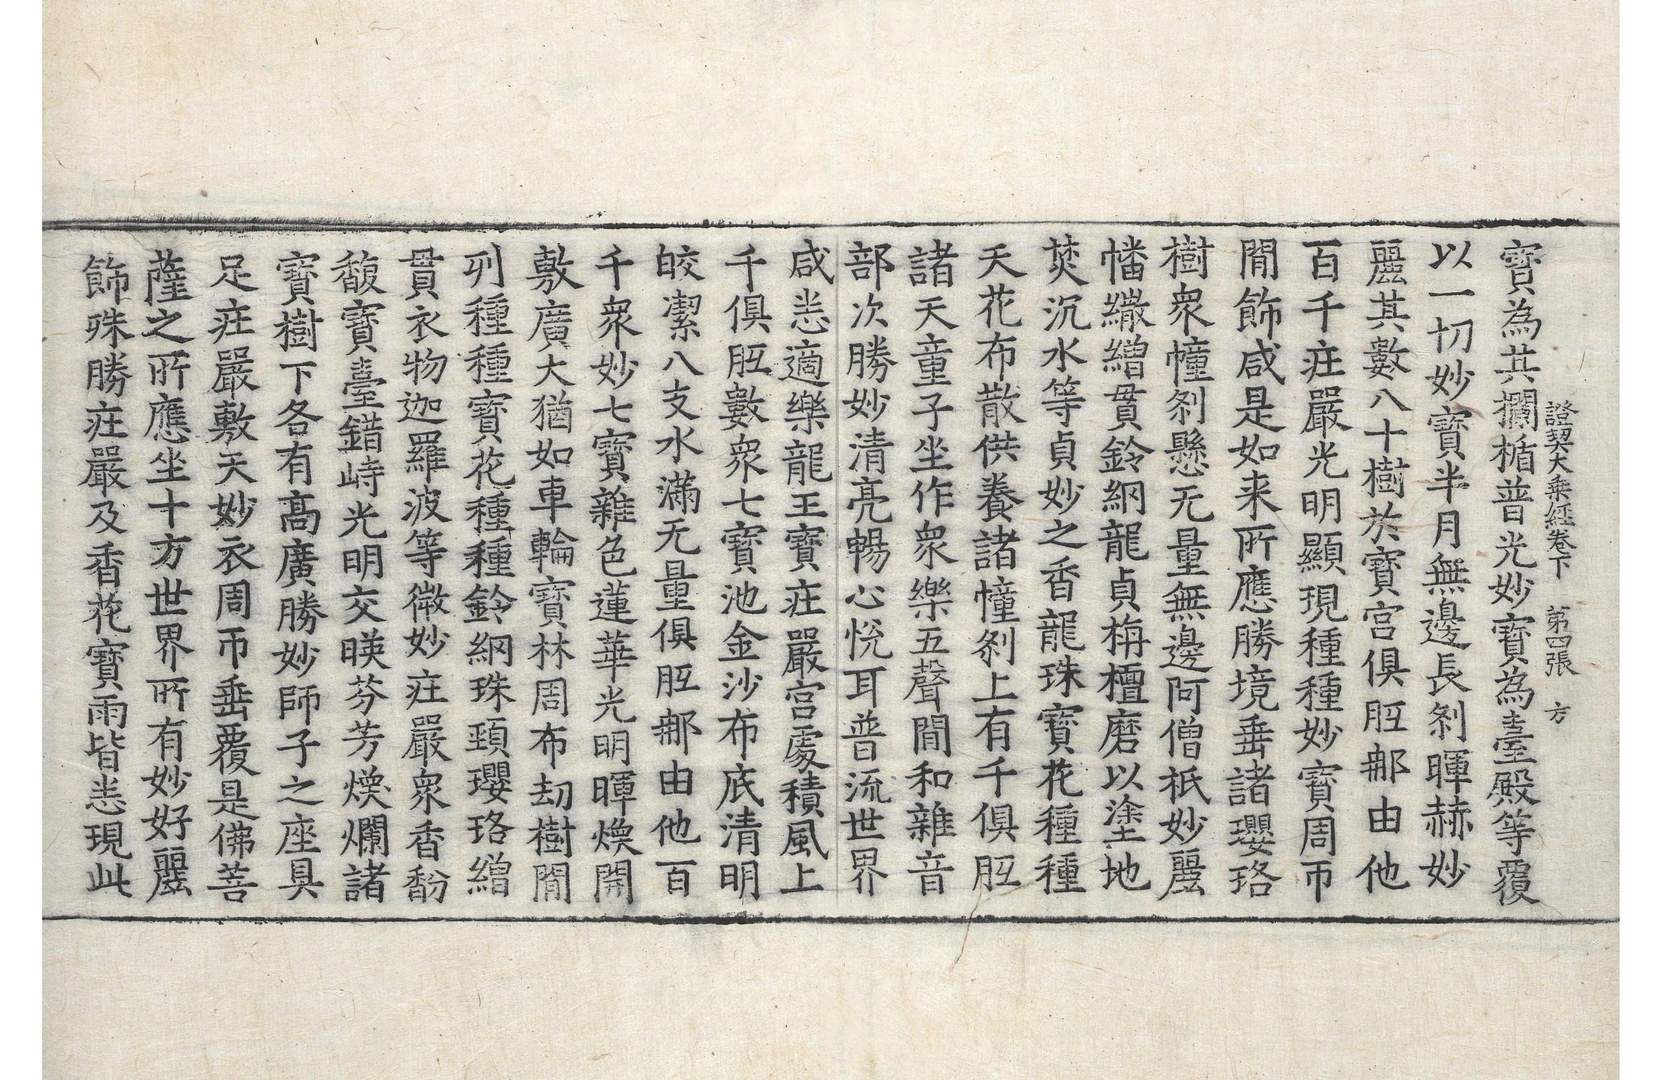 證契大乘經卷下 第四張 方
寶為其攔楯普光妙寶為臺殿等覆
以一切妙寶半月無邊長刹暉赫妙
麗其數八十樹於寶宮俱胝那由他
百千疘嚴光明顯現種種妙寶周帀
間飾咸是如来所應勝境垂諸瓔珞
樹衆幢刹懸无量無邊阿僧祇妙麗
幡繖繒貫鈴網龍貞栴檀磨以塗地
焚沉水等貞妙之香龍珠寶花種種
天花布散供養諸幢刹上有千俱胝
諸天童子坐作衆樂五聲間和雜音
部次勝妙清亮暢心悅耳普流世界
咸悉適樂龍王寶疘嚴宮處積風上
千俱胝數衆七寶池金沙布底清明
皎潔八支水滿无量俱胝那由他百
千衆妙七寶雜色蓮華光明暉煥開
敷廣大猶如車輪寶林周布劫樹間
列種種寶花種種鈴網珠頸瓔珞繒
貫衣物迦羅波等微妙疘嚴衆香馚
馥寶臺錯峙光明交暎芬芳煥爛諸
寶樹下各有髙廣勝妙師子之座具
足疘嚴敷天妙衣周帀垂覆是佛菩
薩之所應坐十方世界所有妙好麗
飾殊勝疘嚴及香花寶雨皆悉現此